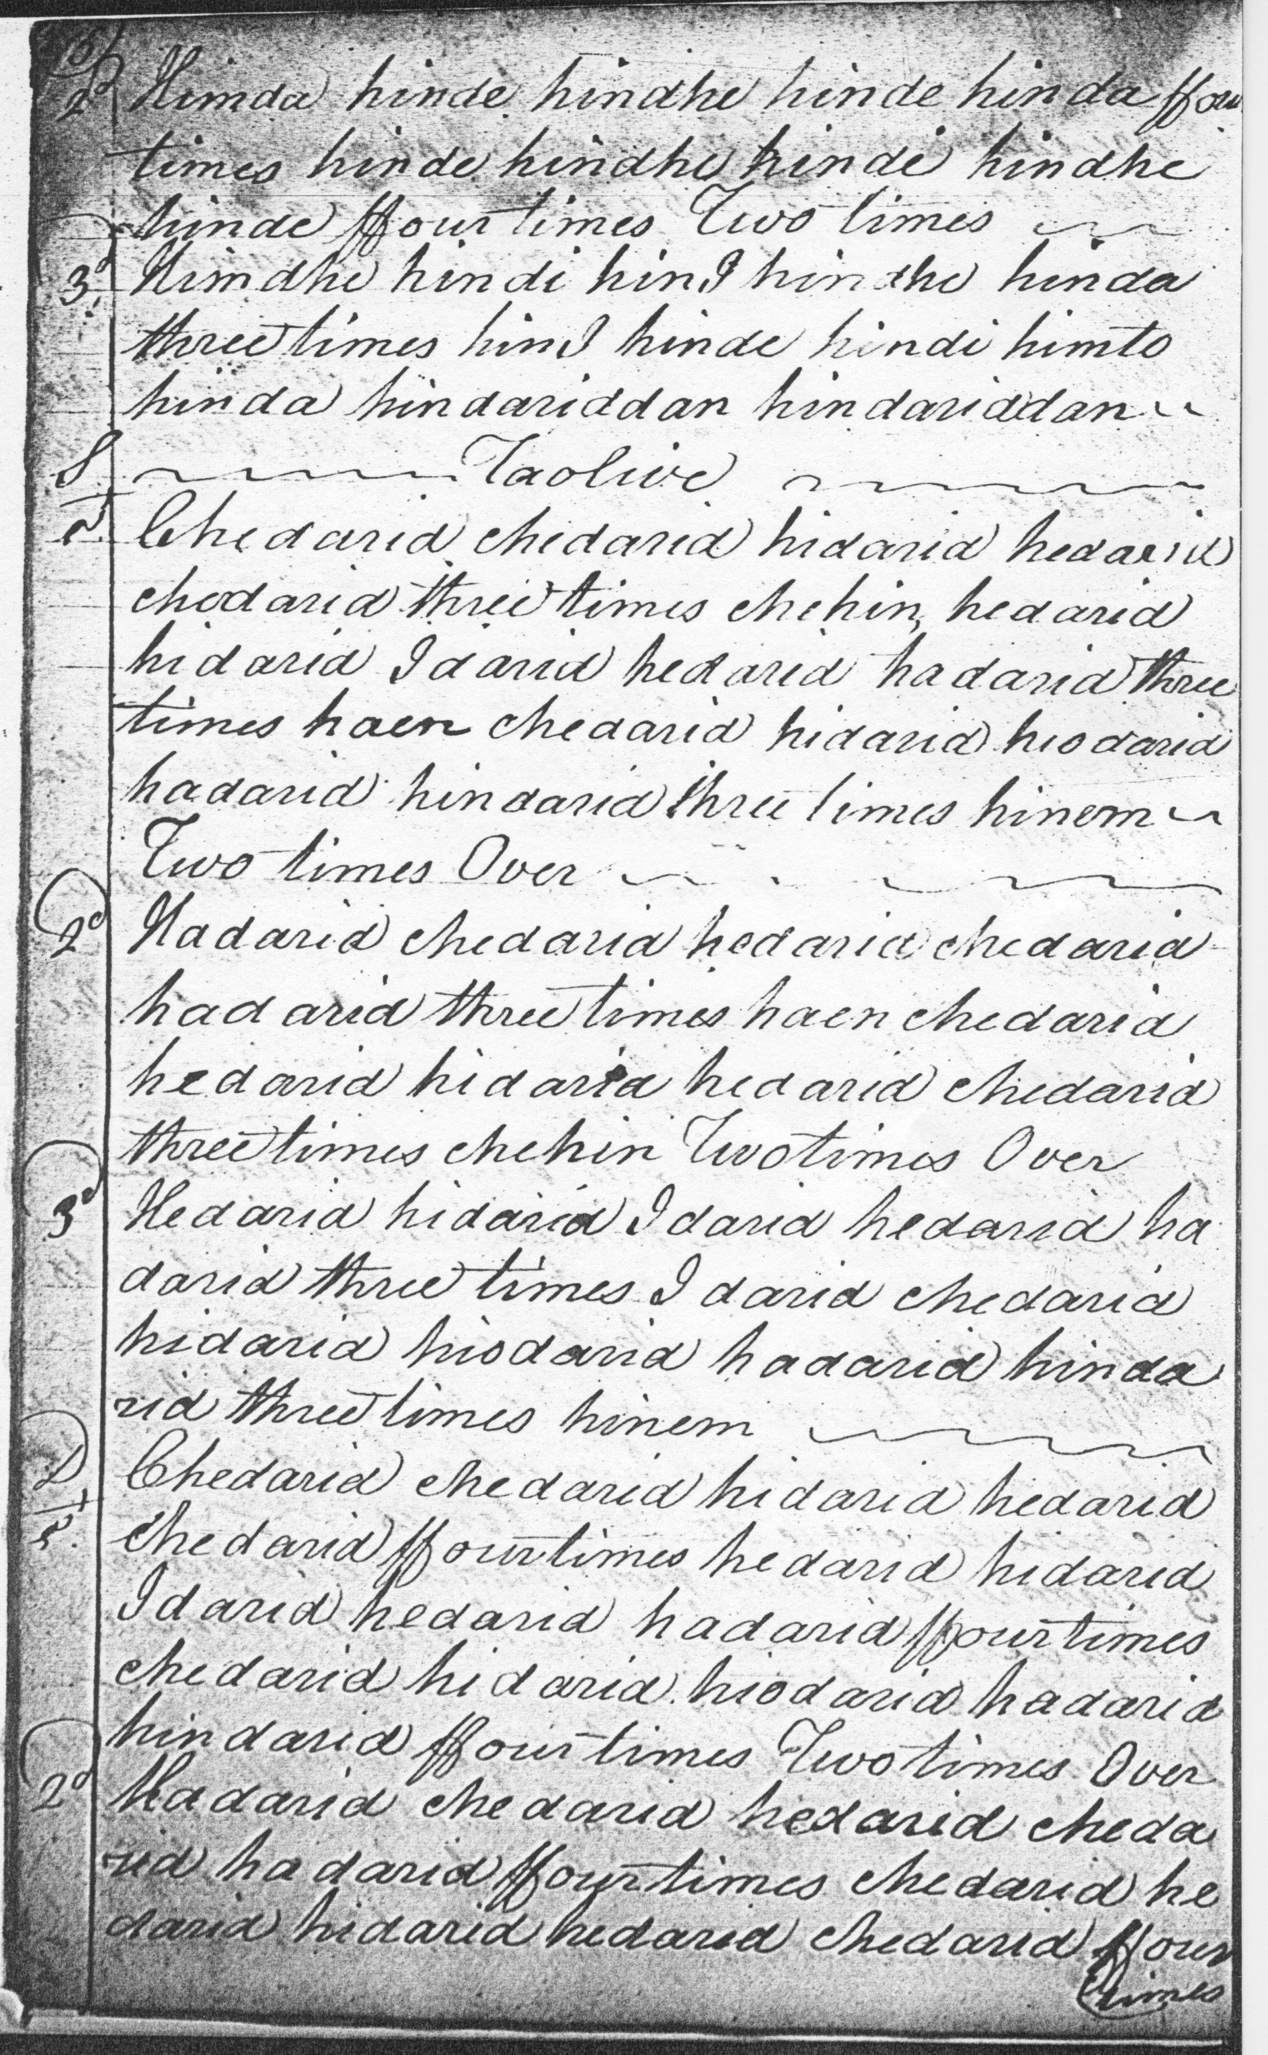 2d Himda hinde hindhe hinde hinda ffour
times hinde hindhe hinde hindhe
hinde ffour times Two times
3d Himdhe hindi hinI hindhe hinda
three times hinI hinde hindi himto
hinda hindariddan hindariddan
S Taolive
1 Chedarid chedarid hidarid hedarid
chedarid three times chehin, hedarid
hidarid Idarid hedarid hadarid three
times haen chedarid hidarid hiodarid
hadarid hindarid three times hinem
Two times Over
2d Hadarid chedarid hedarid chedarid
hadarid three times haen chedarid
hedarid hidarid hedarid chedarid
three times chehin Two times Over
3d Hedarid hidarid Idarid hedarid ha
darid three times Idarid chedarid
hidarid hiodarid hadarid hinda
rid three times hinem
D Chedarid chedarid hidarid hedarid
chedarid ffour times hedarid hidarid
Idarid hedarid hadarid ffour times
chedarid hidarid hiodarid hadarid
hindarid ffour times Two times Over
2d Hadarid chedarid hedarid cheda
rid hadarid ffour times chedarid he
darid hidarid hedarid chedarid ffour
times